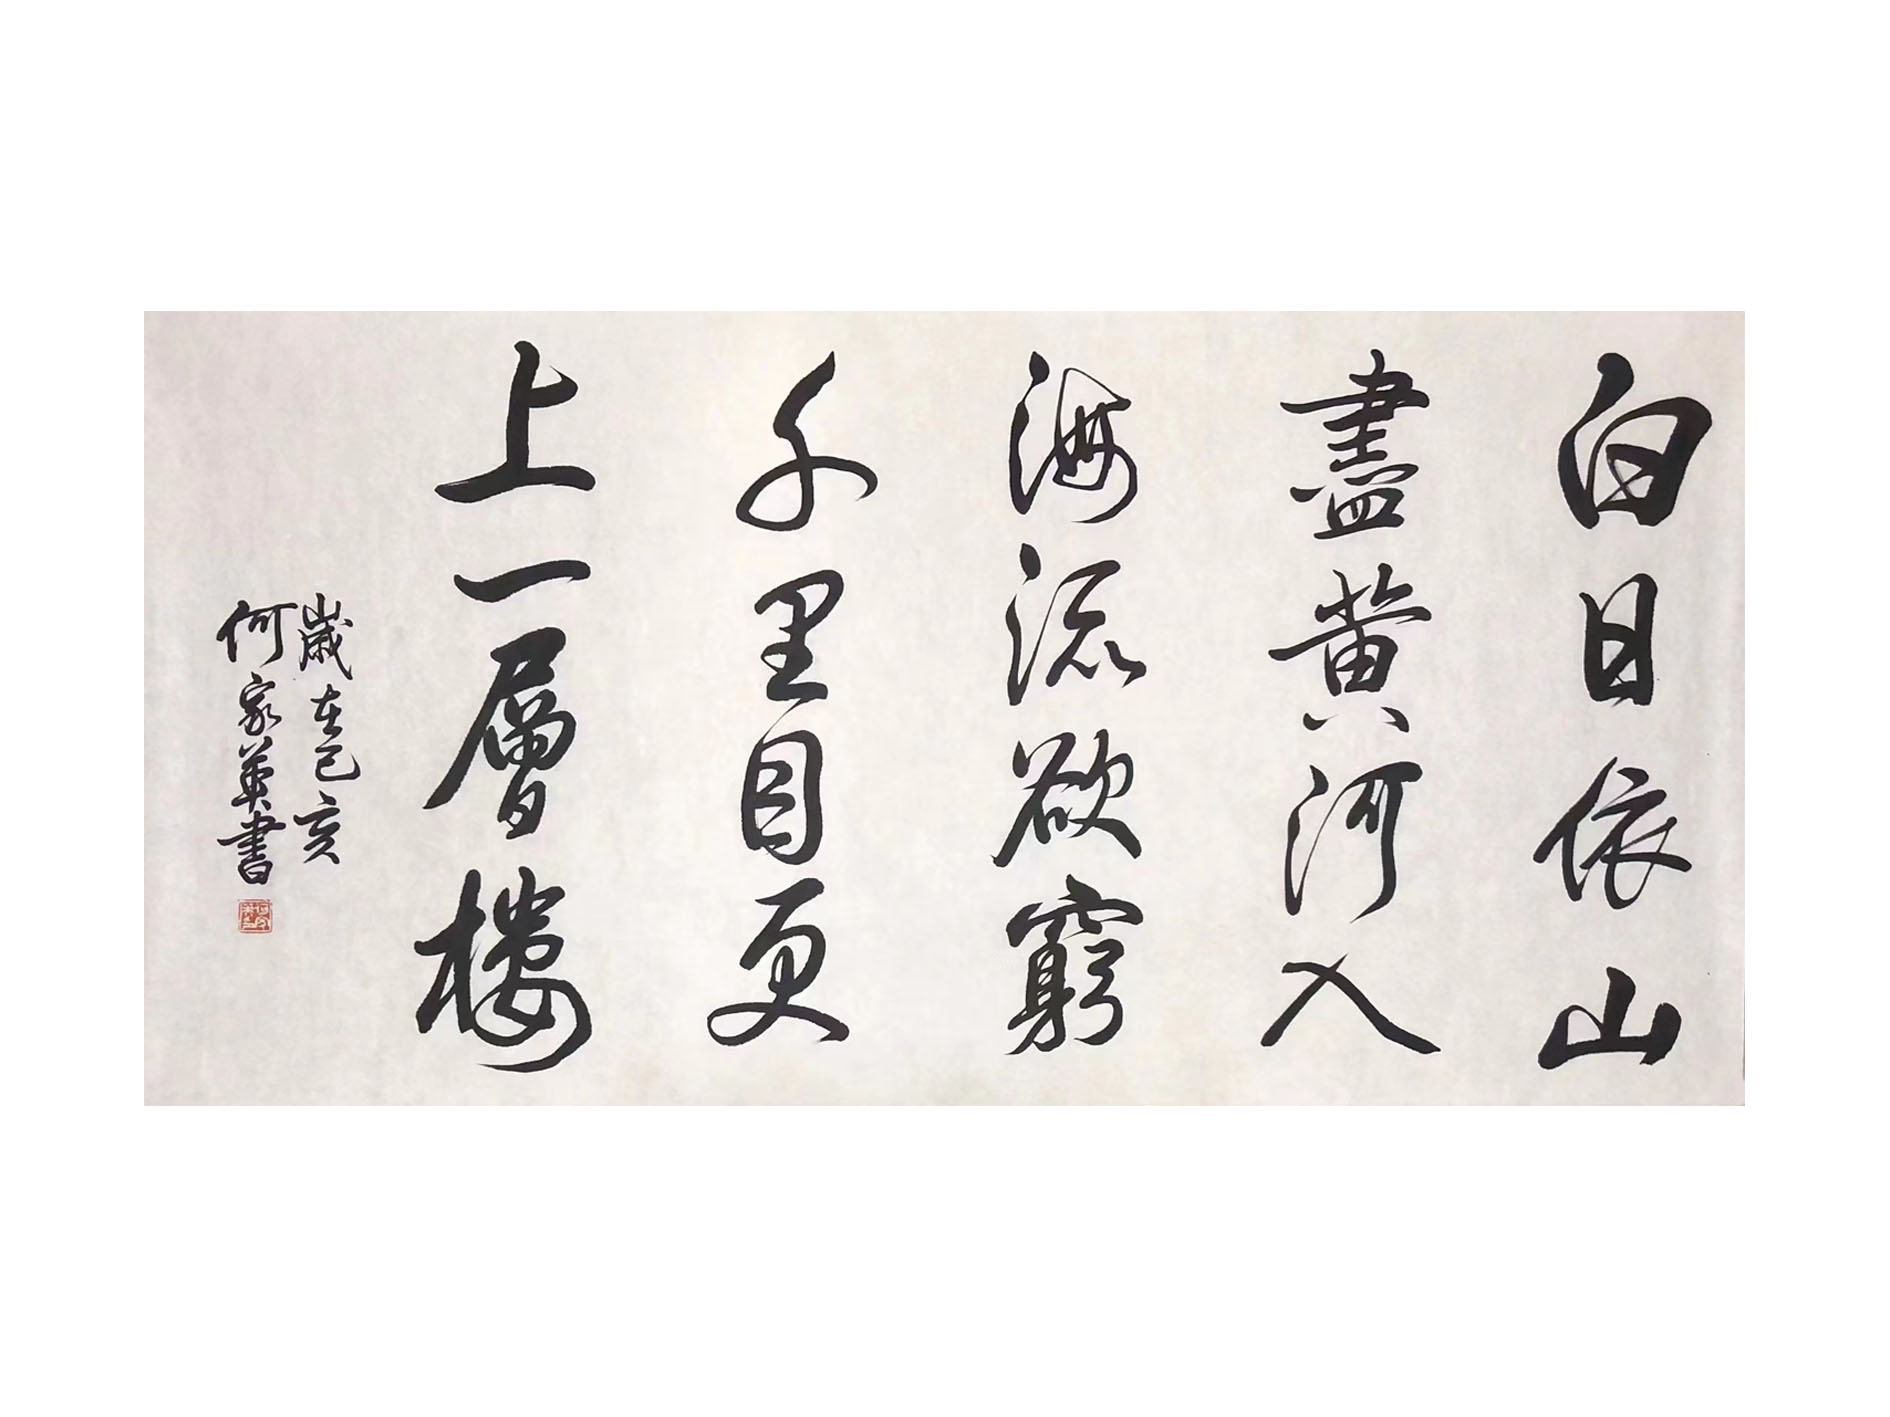 白日依山
盡黄河入
海流欲窮
千里目更
上一層樓
歲在己亥
何家英書